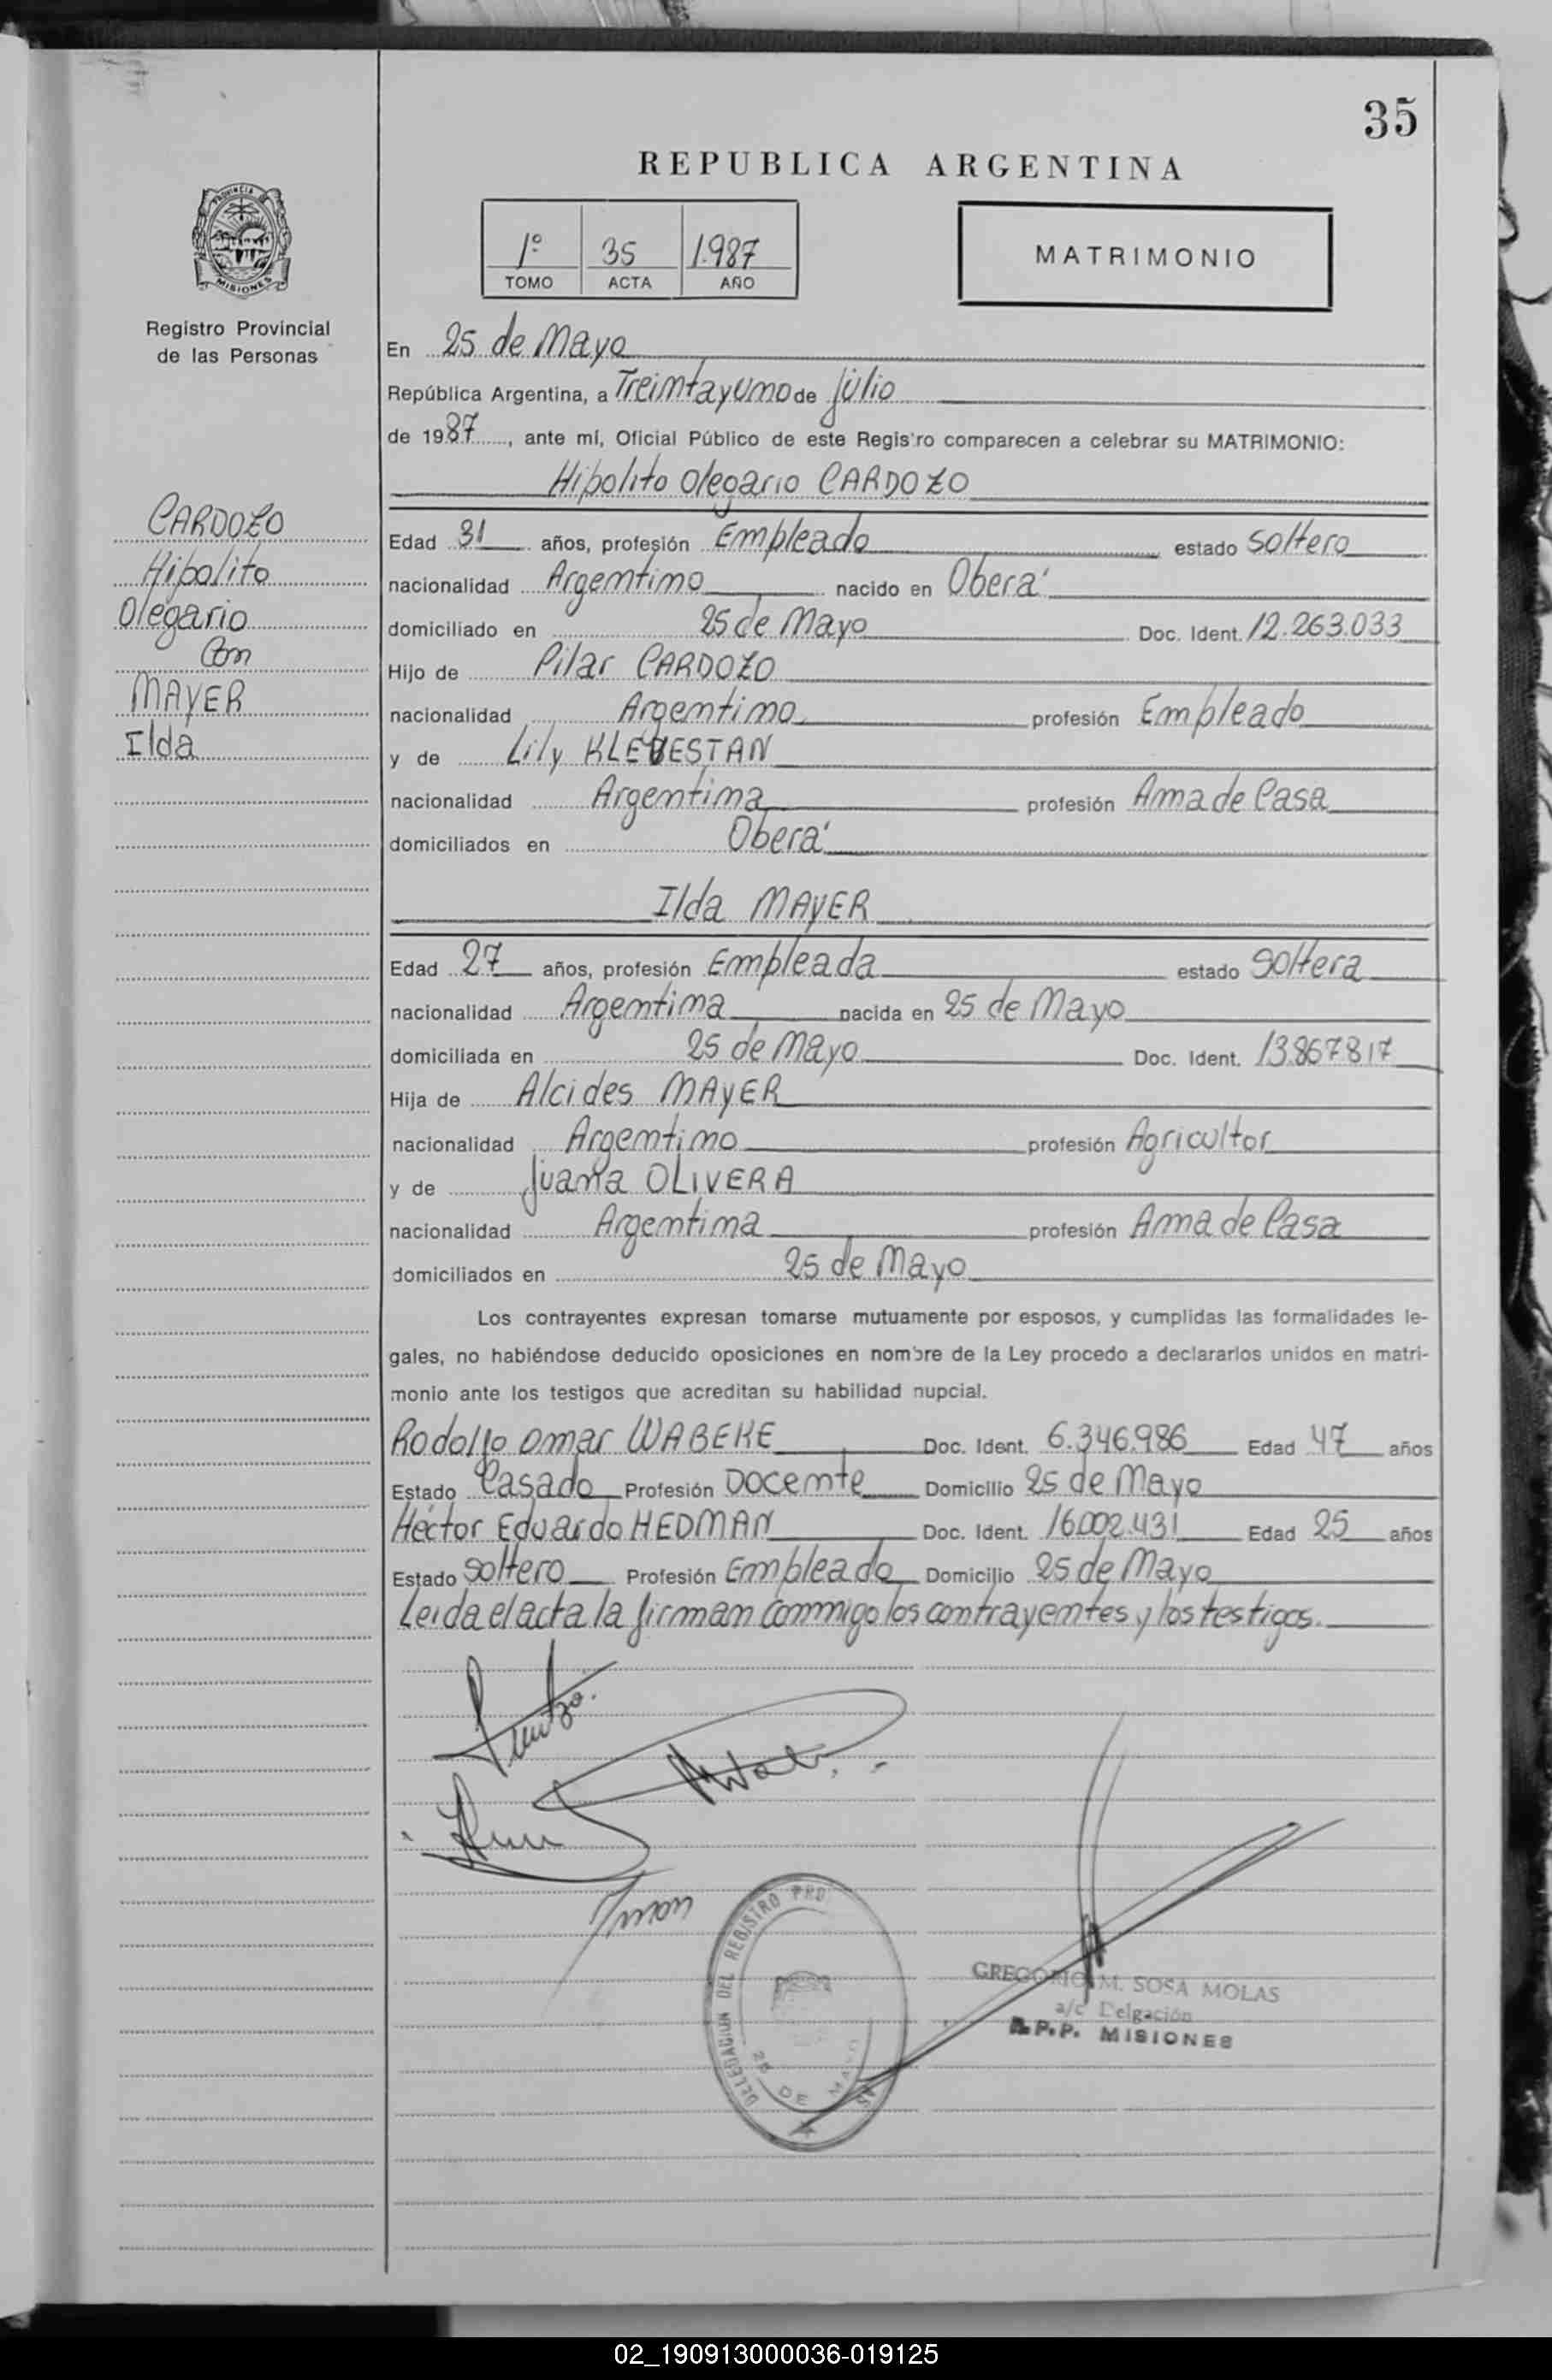 35
REPUBLICA ARGENTINA
PROVINCIA DE
MISIONES
Registro Provincial
de las Personas
1º 35 1.987
TOMO ACTA AÑO
MATRIMONIO
CARDOZO
Hipolito
Olegario
Con
MAYER
Ilda
En 25 de Mayo
República Argentina, a Treinta y uno de julio
de 1987, ante mí, Oficial Público de este Regis'ro comparecen a celebrar su MATRIMONIO:
Hipolito Olegario CARDOZO
Edad 31 años, profesión Empleado estado soltero
nacionalidad Argentino nacido en Oberá
domiciliado en 25 de Mayo Doc. Ident. 12.263.033
Hijo de Pilar CARDOZO
nacionalidad Argentino profesión Empleado
y de Lily KLEVESTAN
nacionalidad Argentina profesión Ama de Casa
domiciliados en Oberá
Ilda MAYER
Edad 27 años, profesión Empleada estado soltera
nacionalidad Argentina nacida en 25 de Mayo
domiciliada en 25 de Mayo Doc. Ident. 13.867.817
Hija de Alcides MAYER
nacionalidad Argentino profesión Agricultor
y de Juana OLIVERA
nacionalidad Argentina profesión Ama de Casa
domiciliados en 25 de Mayo
Los contrayentes expresan tomarse mutuamente por esposos, y cumplidas las formalidades le-
gales, no habiéndose deducido oposiciones en nombre de la Ley procedo a declararlos unidos en matri-
monio ante los testigos que acreditan su habilidad nupcial.
Rodolfo Omar WABEKE Doc. Ident. 6.346.986 Edad 47 años
Estado Casado Profesión Docente Domicilio 25 de Mayo
Héctor Eduardo HEDMAN Doc. Ident. 16.002.431 Edad 25 años
Estado soltero Profesión Empleado Domicilio 25 de Mayo
Leida el acta la firman conmigo los contrayentes y los testigos.
DELEGACION DEL REGISTRO PRO
25 DE MAYO
GREGORIO M. SOSA MOLAS
a/c Delgación
R.P.P. MISIONES
02_190913000036-019125